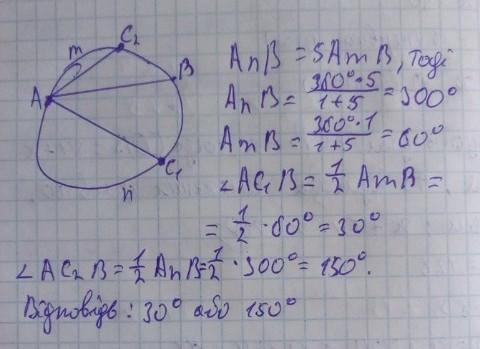 m
C₂
B
A
C₁
n
AnB = 5AmB, Тоді
AnB = 360°·5 / 1+5 = 300°
AmB = 360°·1 / 1+5 = 60°
∠AC₁B = 1/2 AmB =
= 1/2 · 60° = 30°
∠AC₂B = 1/2 AnB = 1/2 · 300° = 150°.
Відповідь: 30° або 150°